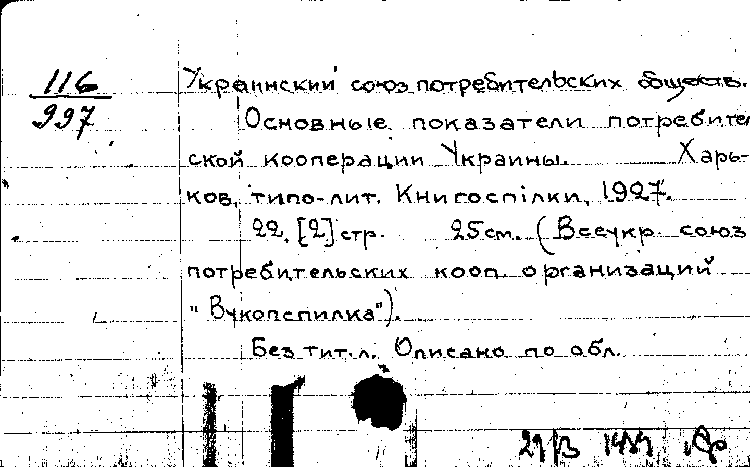 116
997
Украинский союз потребительских обществ.
Основные показатели потребител
ской кооперации Украины. Харь-
ков, типо-лит. Книгоспілки, 1927.
22, [2] стр. 25 см. (Всеукр. союз
потребительских кооп. организаций
"Вукопспилка").
Без тит. л. Описано по обл.